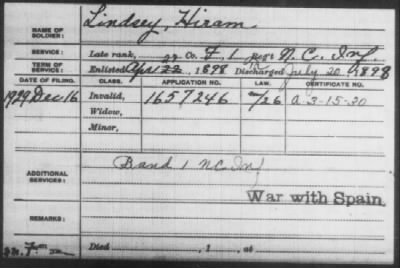 NAME OF SOLDIER: Lindsey, Hiram
SERVICE: Late rank, Co. F, 1 Reg't N.C. Inf.
TERM OF SERVICE: Enlisted Apr 22, 1898 Discharged July 20, 1898
DATE OF FILING. CLASS. APPLICATION NO. LAW. CERTIFICATE NO.
1929 Dec 16 Invalid, 1657246 /26 a-3-15-30
Widow,
Minor,
ADDITIONAL SERVICES: Band 1 N.C. Inf
War with Spain.
REMARKS:
Died , 1 , at